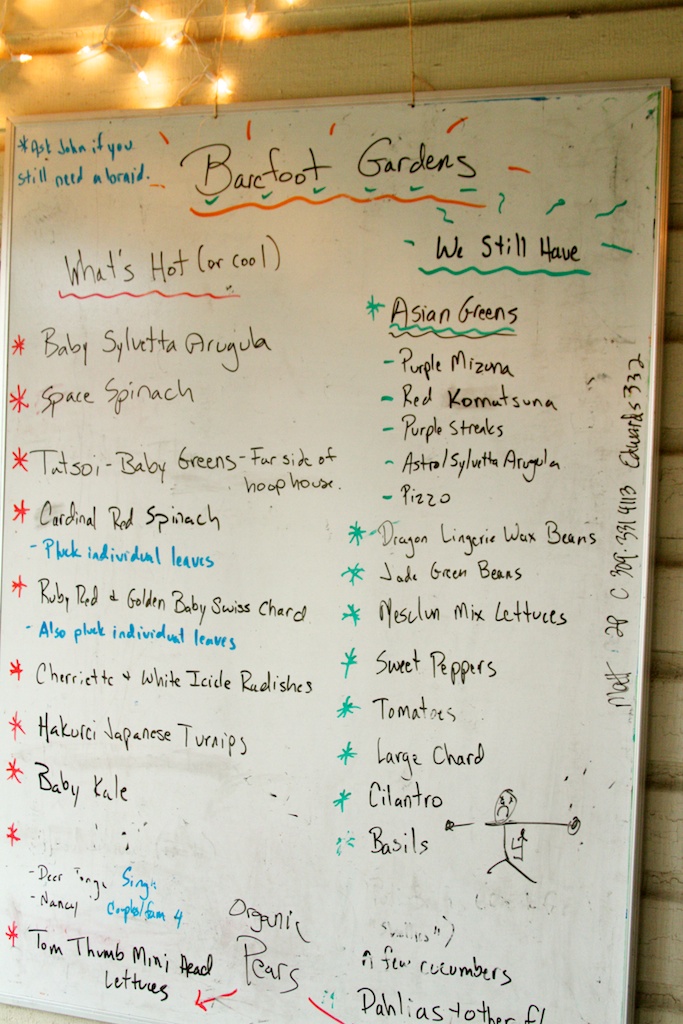 *Ask John if you
still need a braid.
Barefoot Gardens
What's Hot (or cool)
* Baby Sylvetta Arugula
* Space Spinach
* Tatsoi - Baby Greens - Far side of
hoophouse.
* Cardinal Red Spinach
- Pluck individual leaves
* Ruby Red & Golden Baby Swiss Chard
- Also pluck individual leaves
* Cherriette & White Icicle Radishes
* Hakurei Japanese Turnips
* Baby Kale
*
- Deer
- Nancy
* Tom Thumb Mini Head
Lettuces
Organic
Pears
We Still Have
* Asian Greens
- Purple Mizuna
- Red Komatsuna
- Purple Streaks
- Astro/Sylvetta Arugula
- Pizzo
* Dragon Lingerie Wax Beans
* Jade Green Beans
* Mesclun Mix Lettuces
* Sweet Peppers
* Tomatoes
* Large Chard
* Cilantro
* Basils
a few cucumbers
Dahlias + other fl
Matt 28 C 309.331 4113 Edwards 332